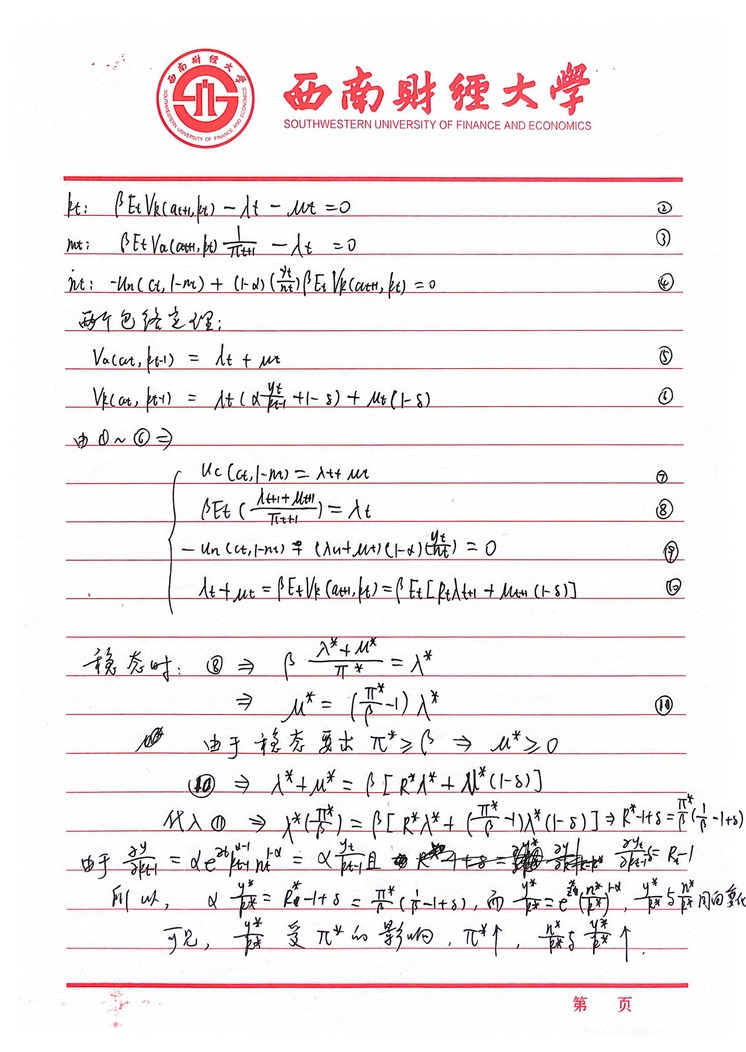 西南财经大学
SOUTHWESTERN UNIVERSITY OF FINANCE AND ECONOMICS
kt: βEtVk(at+1,kt) − λt − μt = 0 ②
mt: βEtVa(at+1,kt) 1/πt+1 − λt = 0 ③
nt: −un(ct,1−nt) + (1−α)(yt/nt)βEtVk(at+1,kt) = 0 ④
两个包络定理:
Va(at,kt-1) = λt + μt ⑤
Vk(at,kt-1) = λt(α yt/kt-1 + 1−δ) + μt(1−δ) ⑥
由①~⑥⇒
uc(ct,1−nt) = λt + μt ⑦
βEt(λt+1+μt+1/πt+1) = λt ⑧
−un(ct,1−nt) + (λt+μt)(1−α)(yt/nt) = 0 ⑨
λt+μt = βEtVk(at+1,kt) = βEt[Rtλt+1 + μt+1(1−δ)] ⑩
稳态时: ⑧ ⇒ β λ*+μ*/π* = λ*
⇒ μ* = (π*/β −1)λ* ⑪
由于稳态要求 π* ≥ β ⇒ μ* ≥ 0
⑩ ⇒ λ*+μ* = β[R*λ* + μ*(1−δ)]
代入⑪ ⇒ λ*(π*/β) = β[R*λ* + (π*/β −1)λ*(1−δ)] ⇒ R*−1+δ = π*/β(1/β −1+δ)
由于 ∂y/∂kt-1 = αe^zt kt-1^α-1 nt^1-α = α yt/kt-1 且 ∂yt/∂kt-1 = Rt−1
所以, α y*/k* = R*−1+δ = π*/β(1/β−1+δ), 而 y*/k* = (n*/k*)^1-α, y*/k* 与 n*/k* 同向变化
可见, y*/k* 受π*的影响, π*↑, n*/k* 与 y*/k* ↑.
第 页